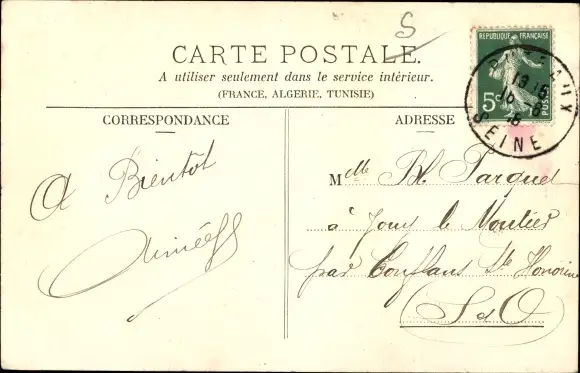 S
CARTE POSTALE.
A utiliser seulement dans le service intérieur.
(FRANCE, ALGERIE, TUNISIE)
REPUBLIQUE FRANÇAISE
5c
POSTES
PUTEAUX
SEINE
CORRESPONDANCE
ADRESSE
A Bientôt
Aimée
Mlle Bl. Parquet
à Jouy le Moutier
par Conflans Ste Honorine
S-d-O